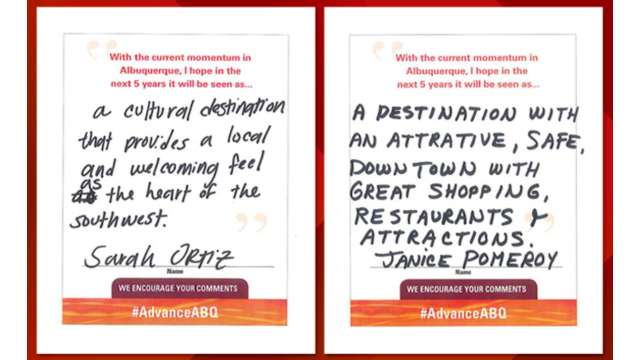 With the current momentum in
Albuquerque, I hope in the
next 5 years it will be seen as...
a cultural destination
that provides a local
and welcoming feel
as the heart of the
southwest.
Sarah Ortiz
Name
WE ENCOURAGE YOUR COMMENTS
#AdvanceABQ
With the current momentum in
Albuquerque, I hope in the
next 5 years it will be seen as...
A DESTINATION WITH
AN ATTRATIVE, SAFE,
DOWNTOWN WITH
GREAT SHOPPING,
RESTAURANTS &
ATTRACTIONS.
JANICE POMEROY
Name
WE ENCOURAGE YOUR COMMENTS
#AdvanceABQ